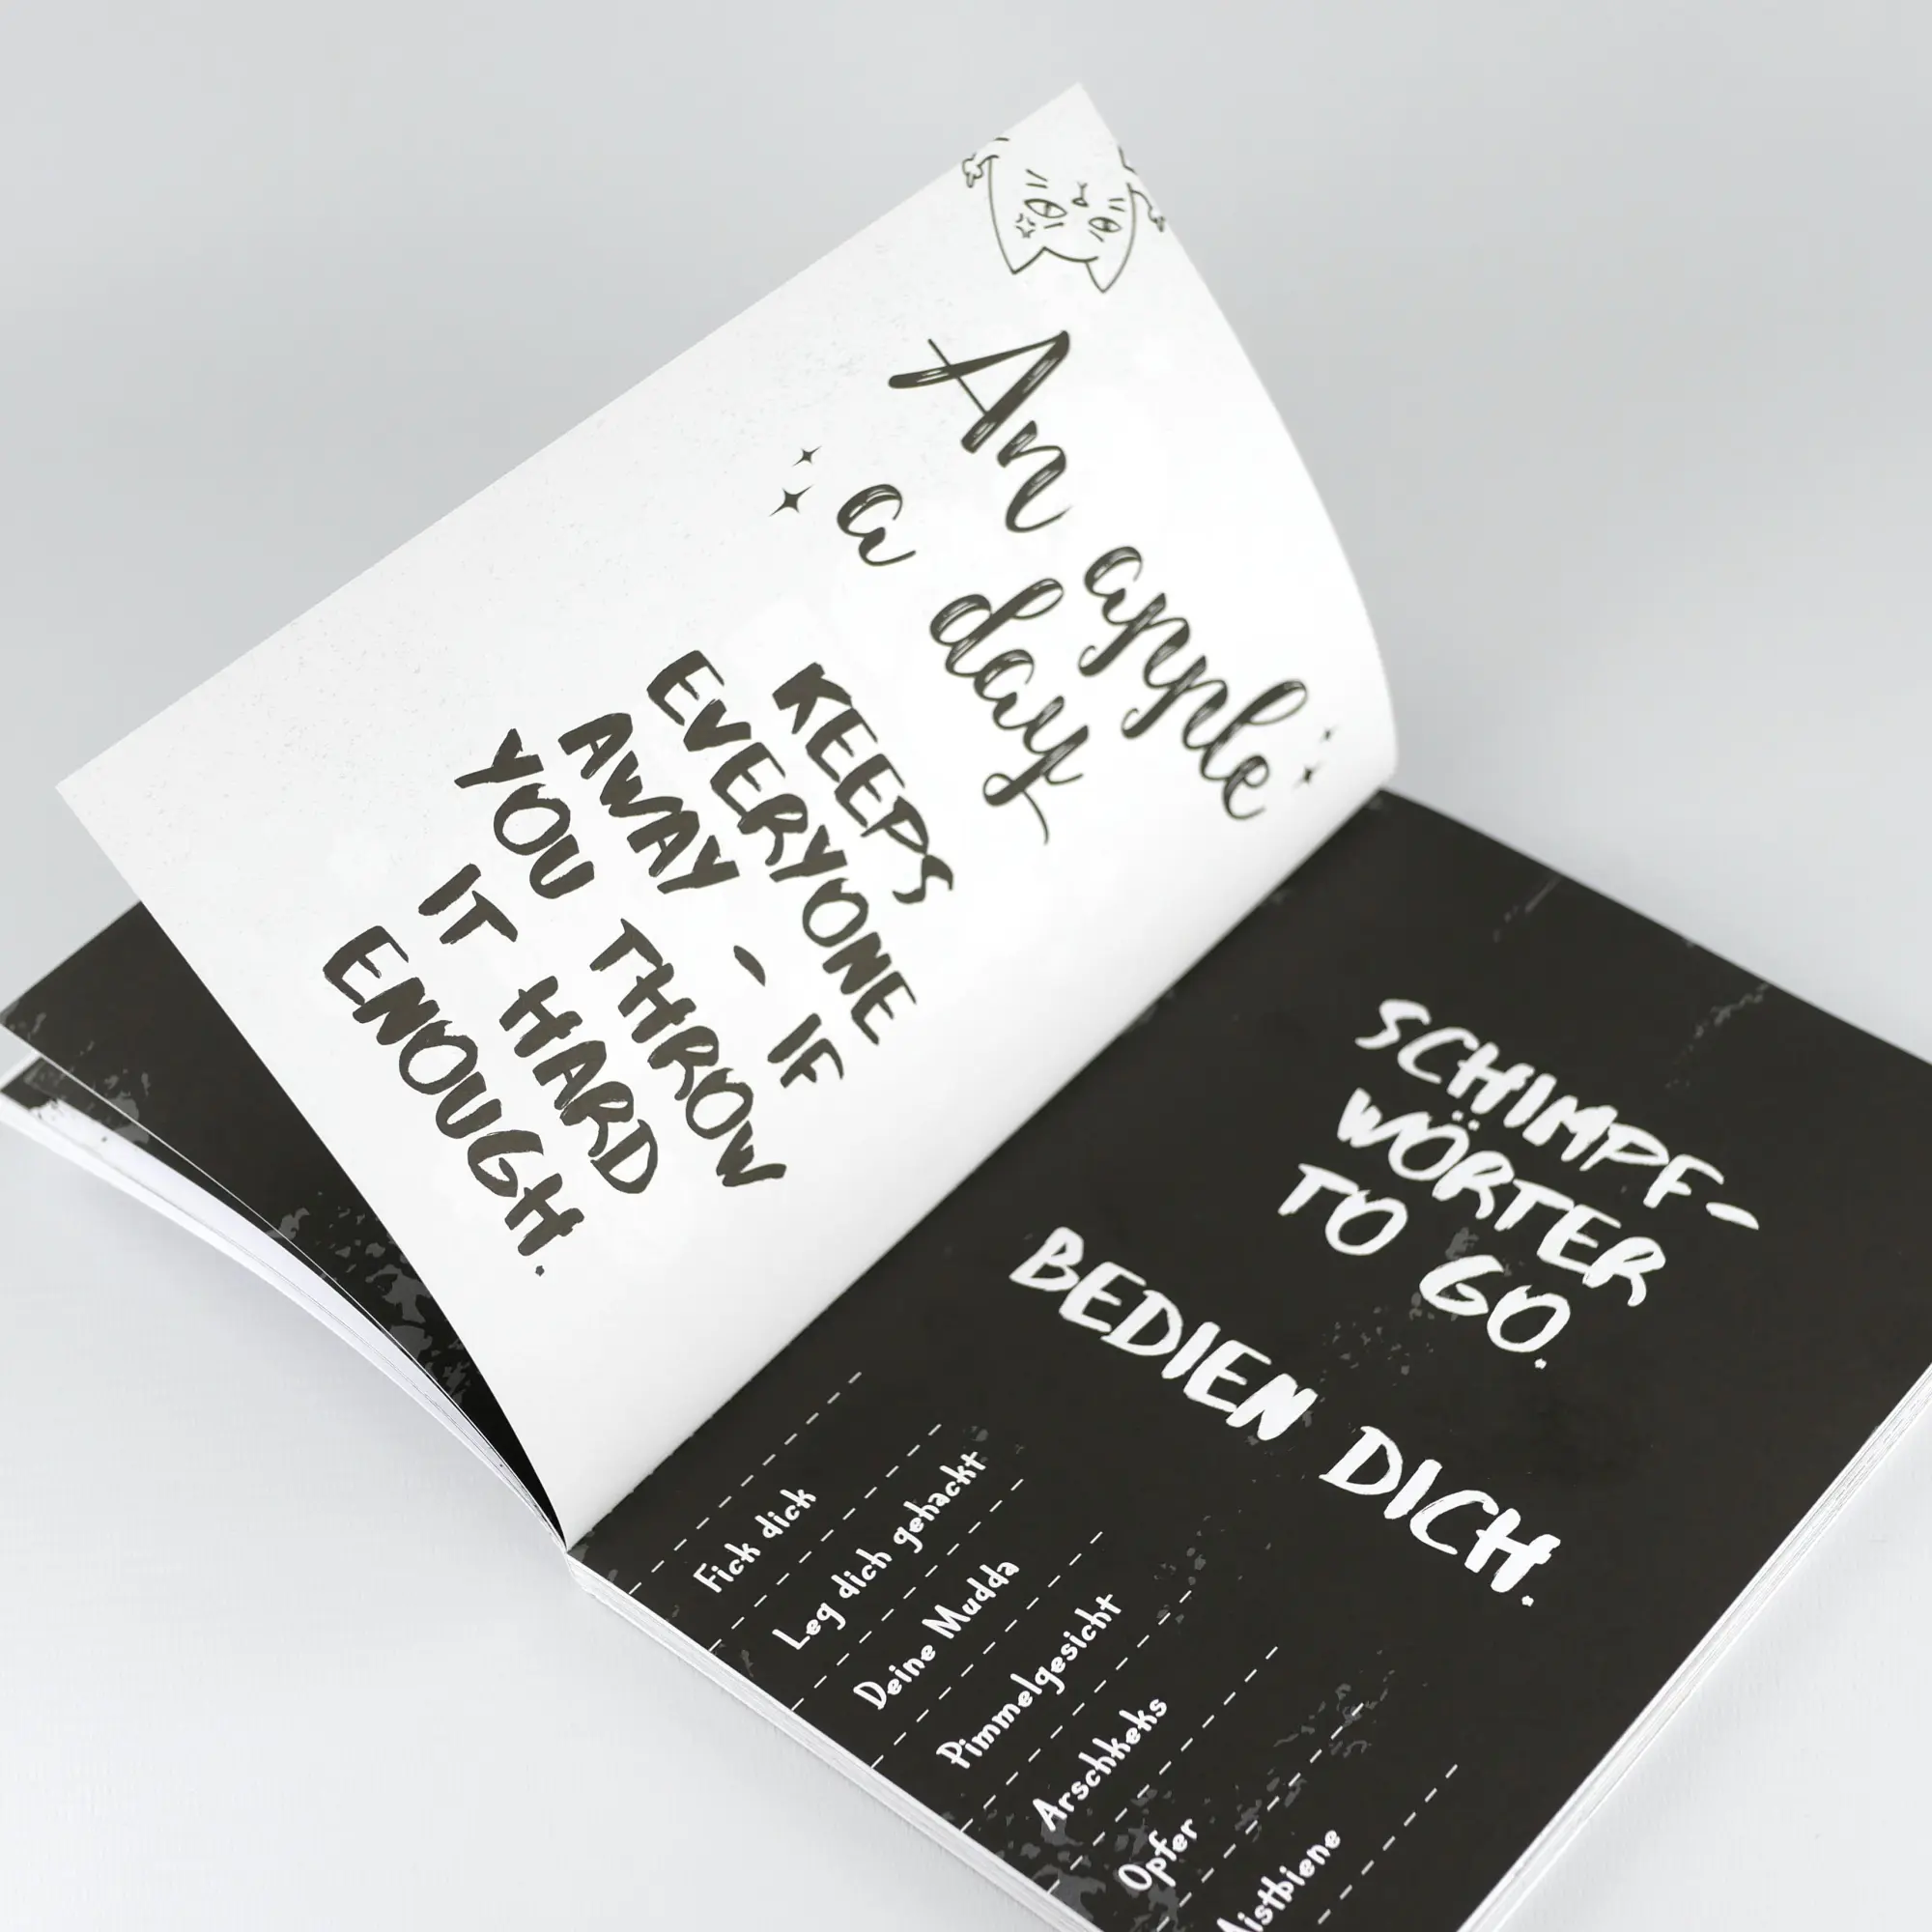 An apple
a day
KEEPS
EVERYONE
AWAY - IF
YOU THROW
IT HARD
ENOUGH.
SCHIMPF-
WÖRTER
TO GO.
BEDIEN DICH.
Fick dick
Leg dich gehackt
Deine Mudda
Pimmelgesicht
Arschkeks
Opfer